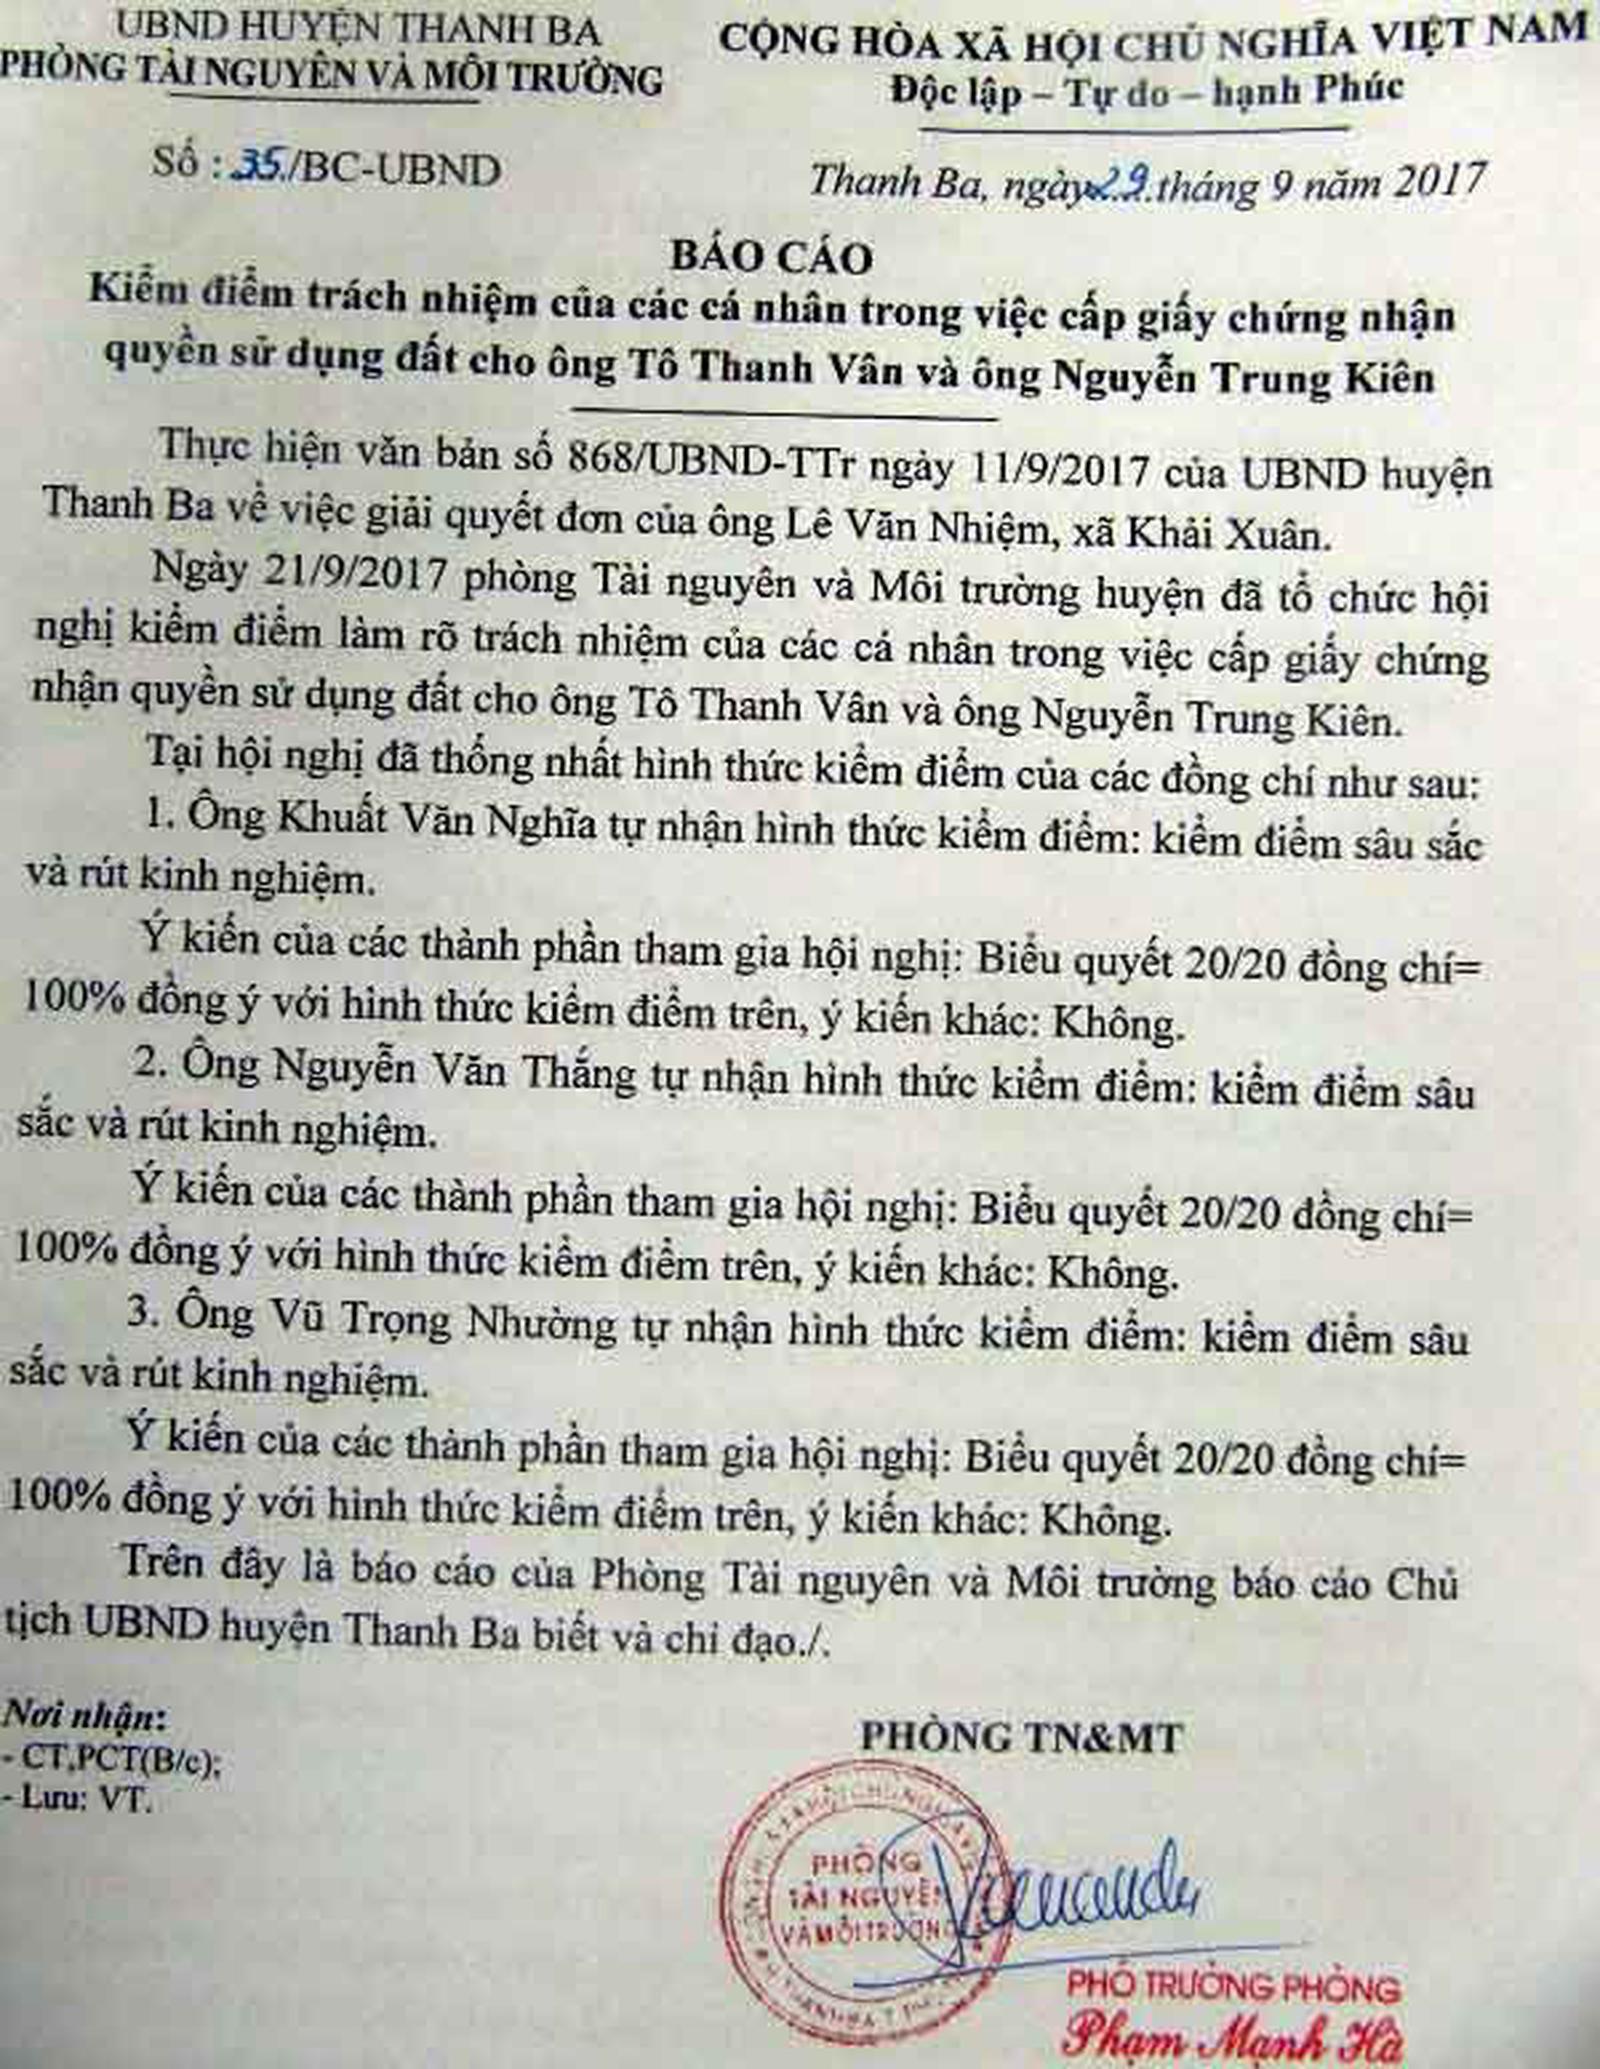 UBND HUYỆN THANH BA
PHÒNG TÀI NGUYÊN VÀ MÔI TRƯỜNG
CỘNG HÒA XÃ HỘI CHỦ NGHĨA VIỆT NAM
Độc lập – Tự do – hạnh Phúc
Số : 35./BC-UBND
Thanh Ba, ngày 29 tháng 9 năm 2017
BÁO CÁO
Kiểm điểm trách nhiệm của các cá nhân trong việc cấp giấy chứng nhận
quyền sử dụng đất cho ông Tô Thanh Vân và ông Nguyễn Trung Kiên
Thực hiện văn bản số 868/UBND-TTr ngày 11/9/2017 của UBND huyện
Thanh Ba về việc giải quyết đơn của ông Lê Văn Nhiệm, xã Khải Xuân.
Ngày 21/9/2017 phòng Tài nguyên và Môi trường huyện đã tổ chức hội
nghị kiểm điểm làm rõ trách nhiệm của các cá nhân trong việc cấp giấy chứng
nhận quyền sử dụng đất cho ông Tô Thanh Vân và ông Nguyễn Trung Kiên.
Tại hội nghị đã thống nhất hình thức kiểm điểm của các đồng chí như sau:
1. Ông Khuất Văn Nghĩa tự nhận hình thức kiểm điểm: kiểm điểm sâu sắc
và rút kinh nghiệm.
Ý kiến của các thành phần tham gia hội nghị: Biểu quyết 20/20 đồng chí=
100% đồng ý với hình thức kiểm điểm trên, ý kiến khác: Không.
2. Ông Nguyễn Văn Thắng tự nhận hình thức kiểm điểm: kiểm điểm sâu
sắc và rút kinh nghiệm.
Ý kiến của các thành phần tham gia hội nghị: Biểu quyết 20/20 đồng chí=
100% đồng ý với hình thức kiểm điểm trên, ý kiến khác: Không.
3. Ông Vũ Trọng Nhường tự nhận hình thức kiểm điểm: kiểm điểm sâu
sắc và rút kinh nghiệm.
Ý kiến của các thành phần tham gia hội nghị: Biểu quyết 20/20 đồng chí=
100% đồng ý với hình thức kiểm điểm trên, ý kiến khác: Không.
Trên đây là báo cáo của Phòng Tài nguyên và Môi trường báo cáo Chủ
tịch UBND huyện Thanh Ba biết và chỉ đạo./.
Nơi nhận:
- CT,PCT(B/c);
- Lưu: VT.
PHÒNG TN&MT
PHÒNG
TÀI NGUYÊN
VÀ MÔI TRƯỜNG
PHÓ TRƯỞNG PHÒNG
Phạm Mạnh Hà